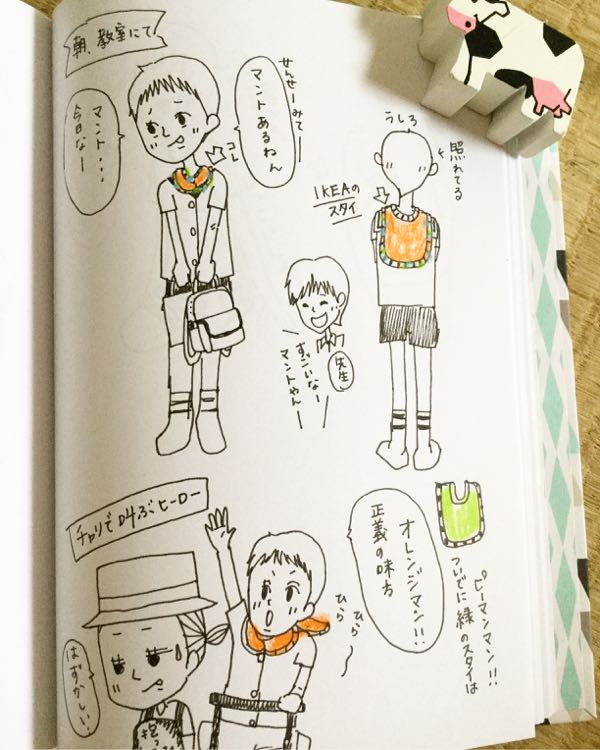 朝、教室にて
せんせーみてー
マントあるねん
マント・・・
今日なー
コレ
うしろ
照れてる
IKEAの
スタイ
先生
すっごいなー
マントやん
チャリで叫ぶヒーロー
オレンジマン!!
正義の味方
ひら
ひら
ピーマンマン!!
ついでに緑のスタイは
はずかしい・